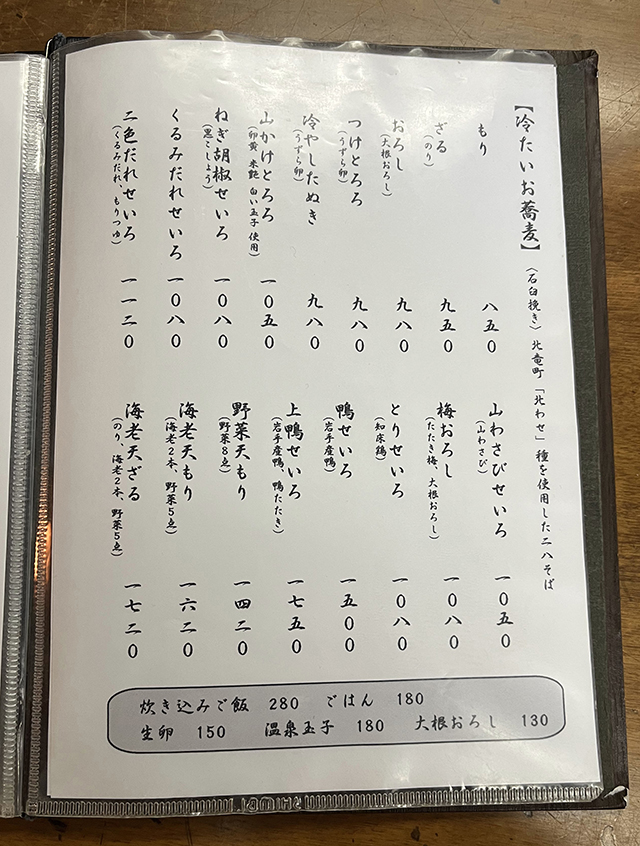 【冷たいお蕎麦】
(石臼挽き)北竜町「北わせ」種を使用した二八そば
もり 八五〇
ざる 九五〇
(のり)
おろし 九八〇
(大根おろし)
つけとろろ 九八〇
(うずら卵)
冷やしたぬき 九八〇
(うずら卵)
山かけとろろ 一〇五〇
(卵黄 米艶 白い玉子 使用)
ねぎ胡椒せいろ 一〇八〇
(黒こしょう)
くるみだれせいろ 一〇八〇
二色だれせいろ 一一二〇
(くるみだれ、もりつゆ)
山わさびせいろ 一〇五〇
(山わさび)
梅おろし 一〇八〇
(たたき梅、大根おろし)
とりせいろ 一〇八〇
(知床鶏)
鴨せいろ 一五〇〇
(岩手産鴨)
上鴨せいろ 一七五〇
(岩手産鴨、鴨たたき)
野菜天もり 一四二〇
(野菜8点)
海老天もり 一六二〇
(海老2本、野菜5点)
海老天ざる 一七二〇
(のり、海老2本、野菜5点)
炊き込みご飯 280 ごはん 180
生卵 150 温泉玉子 180 大根おろし 130